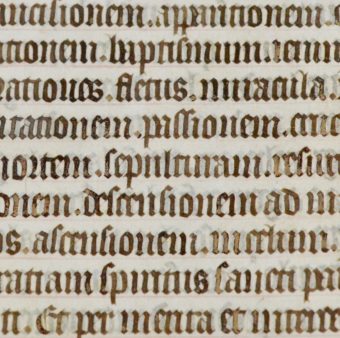 umcisionem.apparitionem.
ationem baptismum ieiuni
rationes.fletus.miracula.
utationem.passionem.cruc
mortem.sepulturam.resurr
onem.descensionem ad in
os.ascensionem.in celum.
ratiam spiritus sancti pa
ti. Et per merita et interce